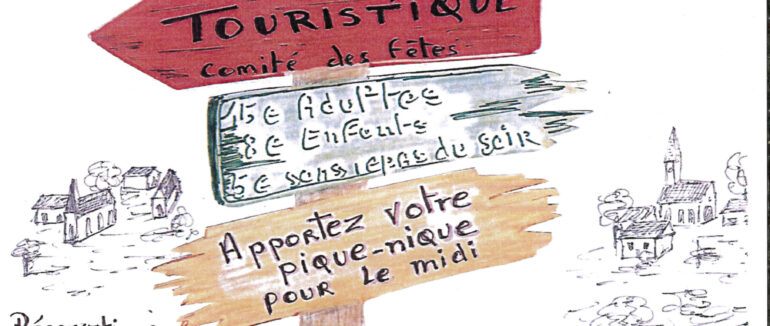 TOURISTIQUE
Comité des fêtes
15€ Adultes
8€ Enfants
5€ sans repas du soir
Apportez votre
pique-nique
pour le midi